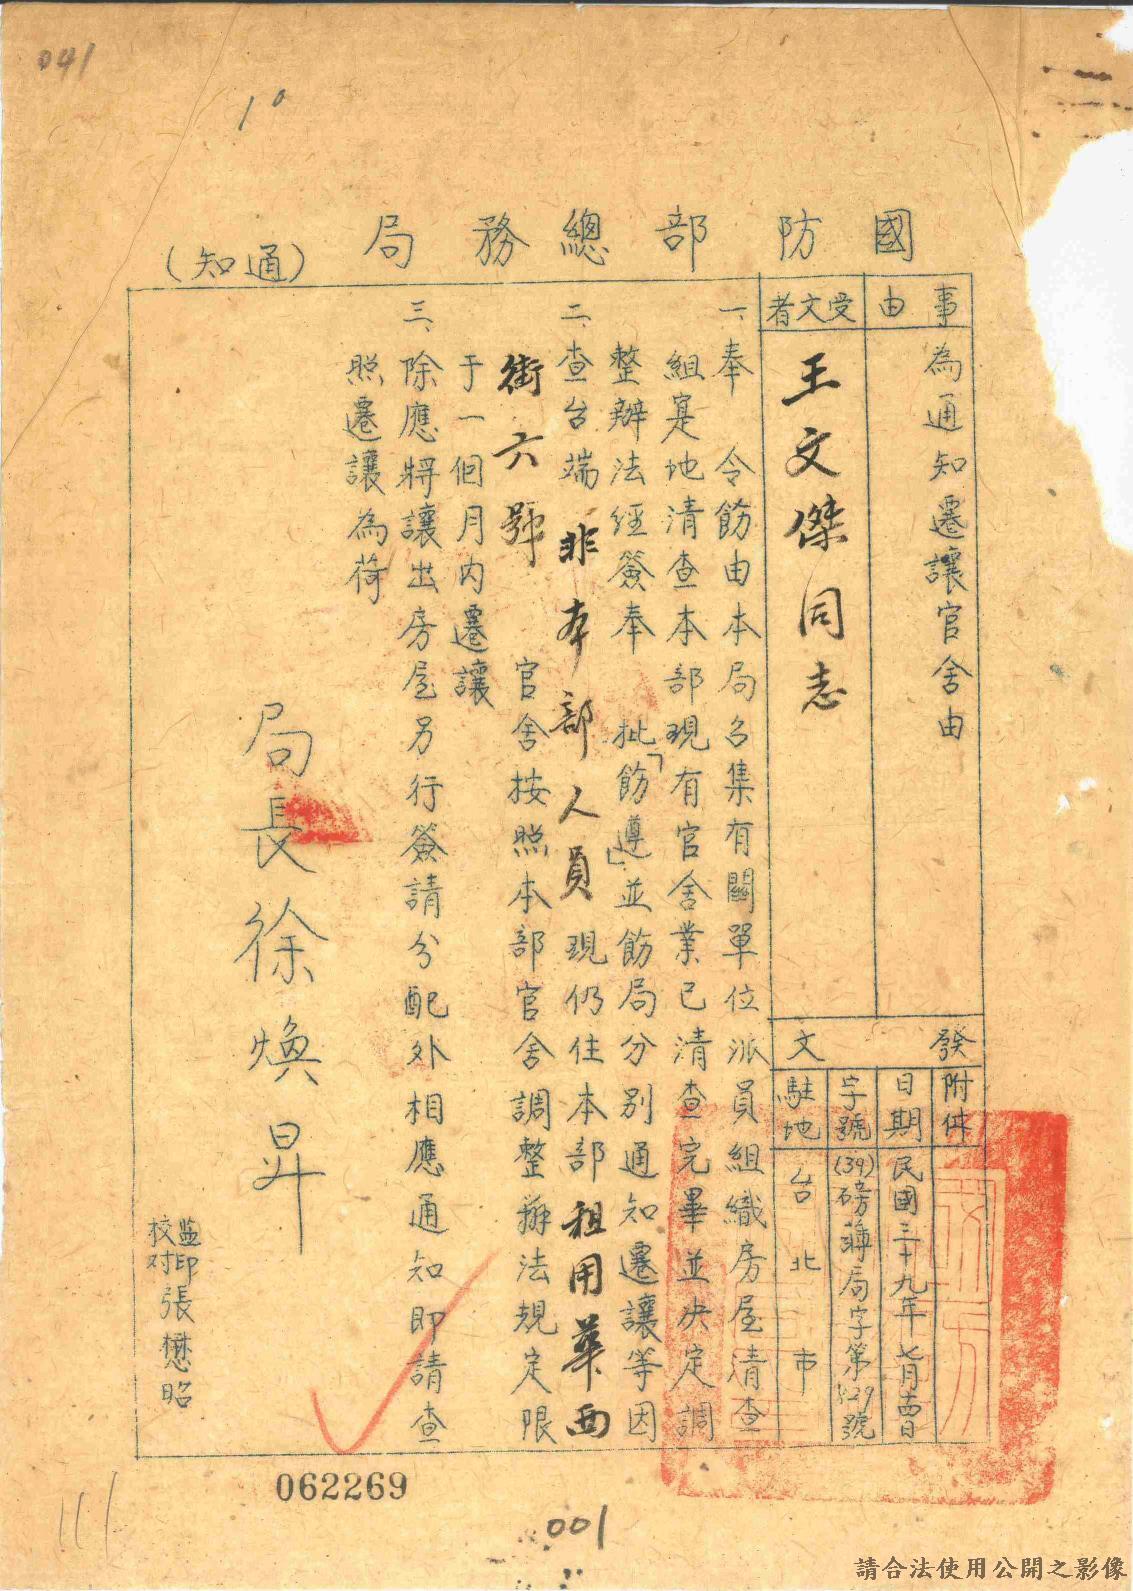 041
10
國防部總務局(通知)
事由
為通知遷讓官舍由
受文者
王文傑同志
發文
附件
日期
民國三十九年七月 日
字號
(39)磅薄局字第 號
駐地
台北市
一、奉 令飭由本局召集有關單位派員組織房屋清查
組寔地清查本部現有官舍業已清查完畢並決定調
整辦法經簽奉 批「飭遵」並飭局分別通知遷讓等因
二、查台端非本部人員現仍住本部租用華西
街六號 官舍按照本部官舍調整辦法規定限
于一個月內遷讓
三、除應將讓出房屋另行簽請分配外相應通知即請查
照遷讓為荷
局長徐煥昇
監印
校对
張懋昭
062269
001
請合法使用公開之影像